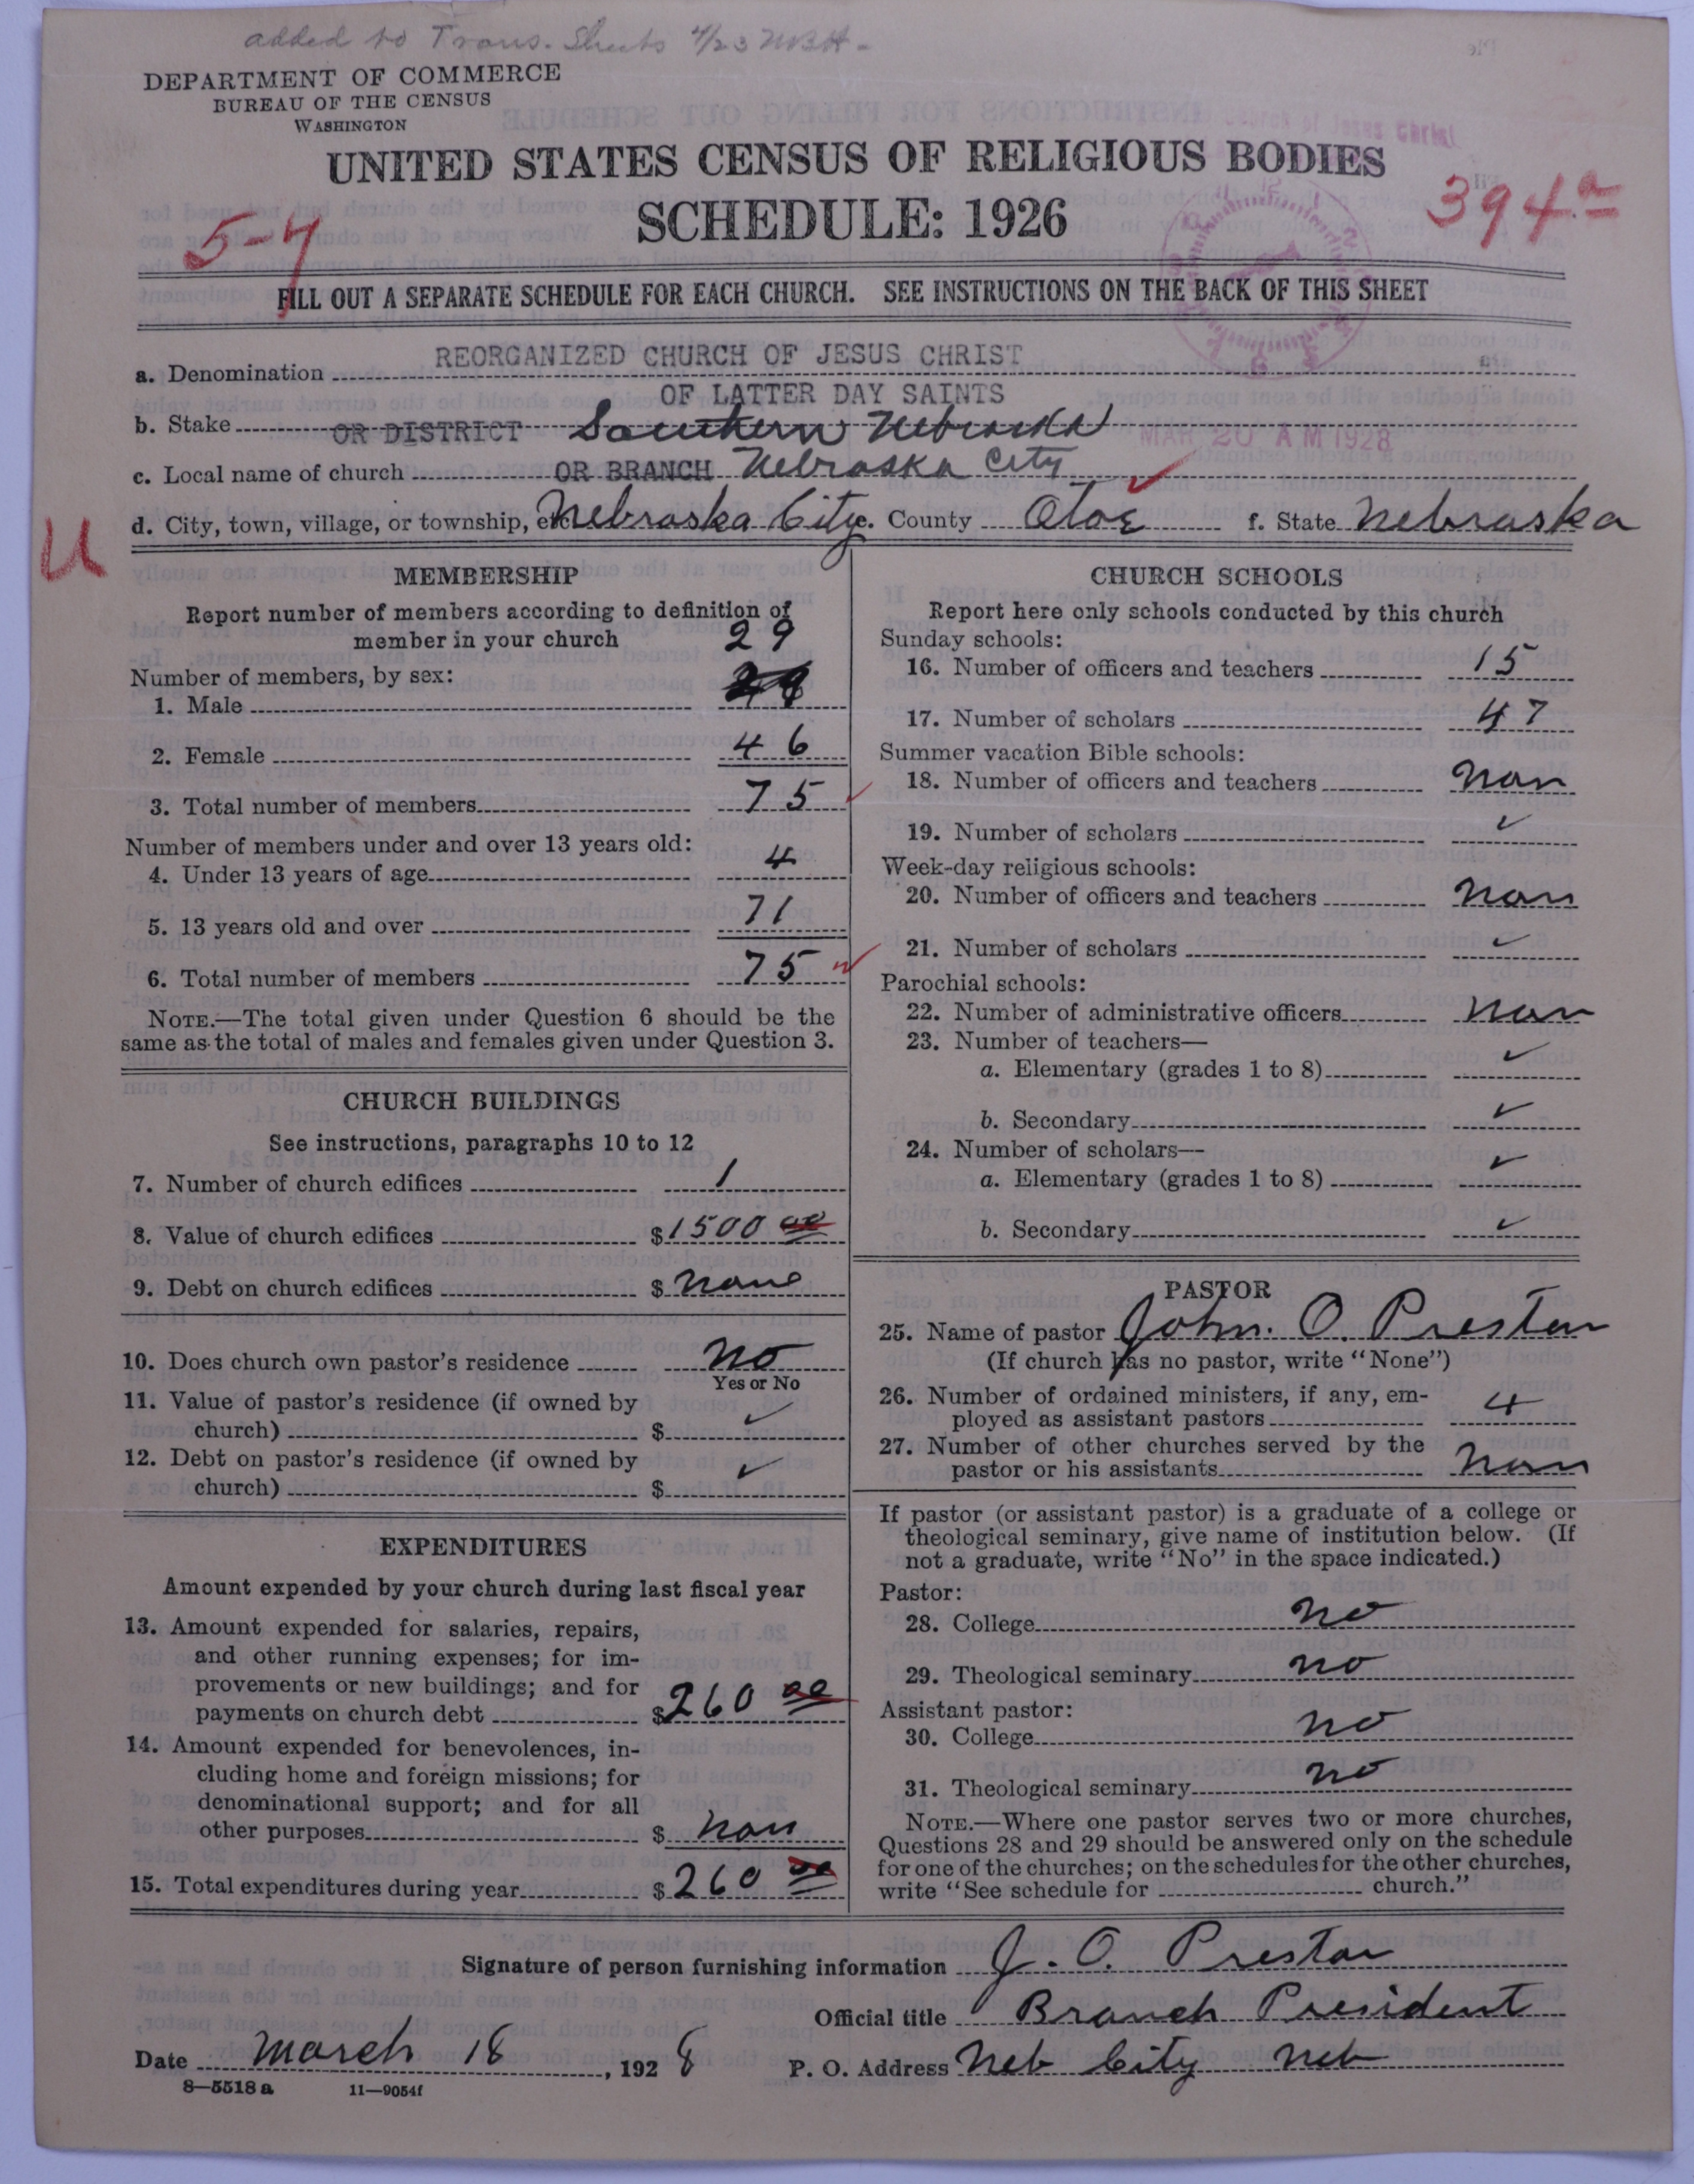 added to Trans. Sheets 4/23 MBH-
DEPARTMENT OF COMMERCE
BUREAU OF THE CENSUS
WASHINGTON
UNITED STATES CENSUS OF RELIGIOUS BODIES
SCHEDULE: 1926
5-7
394a
FILL OUT A SEPARATE SCHEDULE FOR EACH CHURCH. SEE INSTRUCTIONS ON THE BACK OF THIS SHEET
a. Denomination REORGANIZED CHURCH OF JESUS CHRIST
OF LATTER DAY SAINTS
b. Stake OR DISTRICT Southern Nebraska
MAR 20 AM 1928
c. Local name of church OR BRANCH Nebraska City
d. City, town, village, or township, etc. Nebraska City e. County Otoe f. State Nebraska
U
MEMBERSHIP
Report number of members according to definition of
member in your church 29
Number of members, by sex:
1. Male
2. Female 46
3. Total number of members 75
Number of members under and over 13 years old:
4. Under 13 years of age 4
5. 13 years old and over 71
6. Total number of members 75
NOTE.—The total given under Question 6 should be the
same as the total of males and females given under Question 3.
CHURCH BUILDINGS
See instructions, paragraphs 10 to 12
7. Number of church edifices 1
8. Value of church edifices $1500 00
9. Debt on church edifices $ none
10. Does church own pastor's residence no
Yes or No
11. Value of pastor's residence (if owned by
church) $ ✓
12. Debt on pastor's residence (if owned by
church) $ ✓
EXPENDITURES
Amount expended by your church during last fiscal year
13. Amount expended for salaries, repairs,
and other running expenses; for im-
provements or new buildings; and for
payments on church debt $260 00
14. Amount expended for benevolences, in-
cluding home and foreign missions; for
denominational support; and for all
other purposes $ non
15. Total expenditures during year $260 00
CHURCH SCHOOLS
Report here only schools conducted by this church
Sunday schools:
16. Number of officers and teachers 15
17. Number of scholars 47
Summer vacation Bible schools:
18. Number of officers and teachers non
19. Number of scholars ✓
Week-day religious schools:
20. Number of officers and teachers non
21. Number of scholars ✓
Parochial schools:
22. Number of administrative officers non
23. Number of teachers—
a. Elementary (grades 1 to 8) ✓
b. Secondary ✓
24. Number of scholars—
a. Elementary (grades 1 to 8) ✓
b. Secondary ✓
PASTOR
25. Name of pastor John. O. Preston
(If church has no pastor, write "None")
26. Number of ordained ministers, if any, em-
ployed as assistant pastors 4
27. Number of other churches served by the
pastor or his assistants non
If pastor (or assistant pastor) is a graduate of a college or
theological seminary, give name of institution below. (If
not a graduate, write "No" in the space indicated.)
Pastor:
28. College no
29. Theological seminary no
Assistant pastor:
30. College no
31. Theological seminary no
NOTE.—Where one pastor serves two or more churches,
Questions 28 and 29 should be answered only on the schedule
for one of the churches; on the schedules for the other churches,
write "See schedule for church."
Signature of person furnishing information J. O. Preston
Official title Branch President
Date March 18, 1928 P. O. Address Neb City Neb
8—5518 a 11—9054f